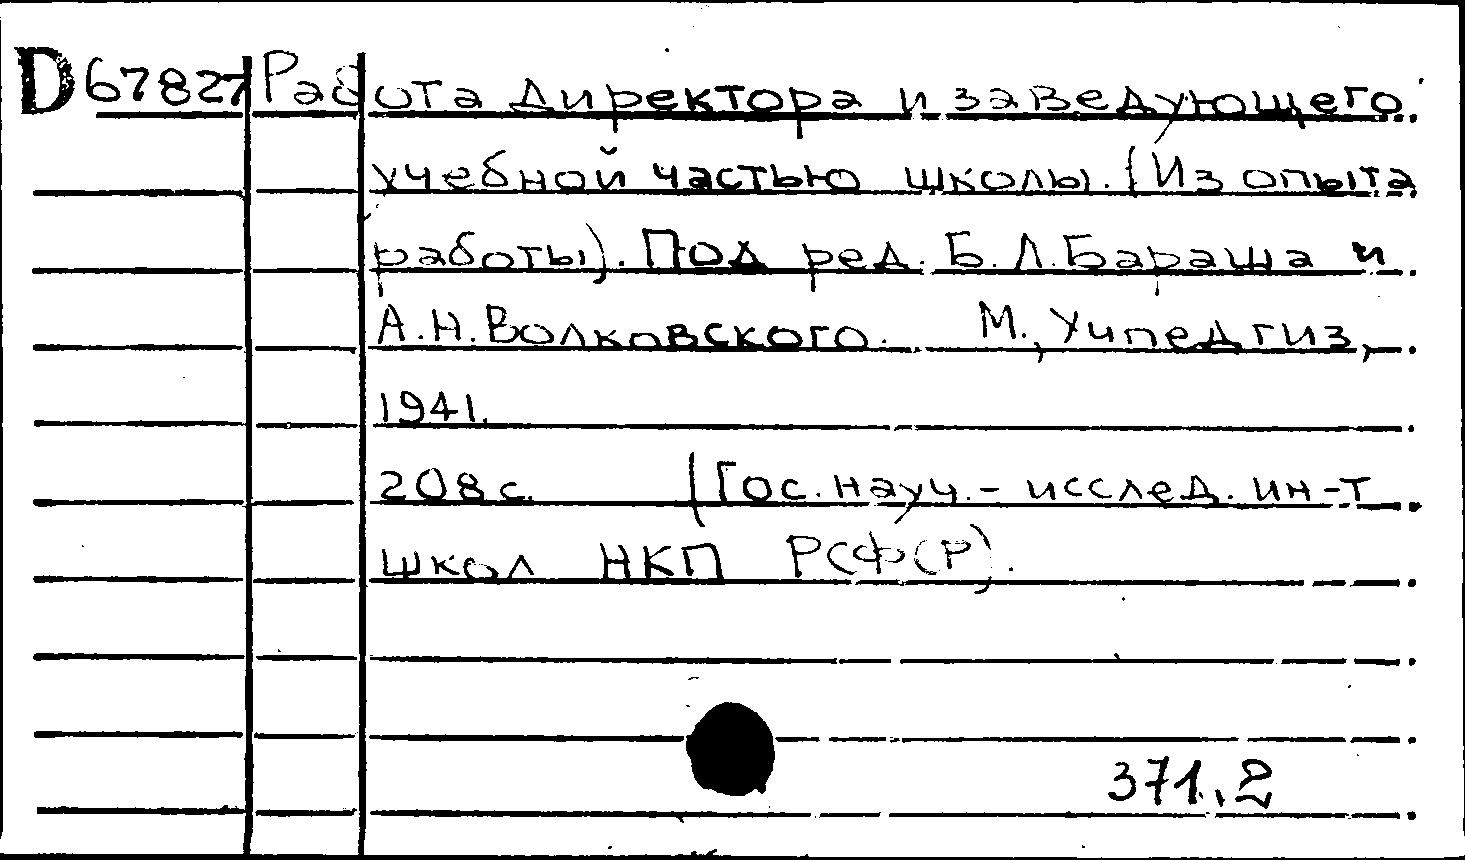 D67827 Работа директора и заведующего
учебной частью школы. (Из опыта
работы). Под ред. Б.Л.Бараша и
А.Н.Волковского. М., Учпедгиз,
1941.
208с. (Гос.науч.-исслед.ин-т
школ НКП РСФСР).
371.2